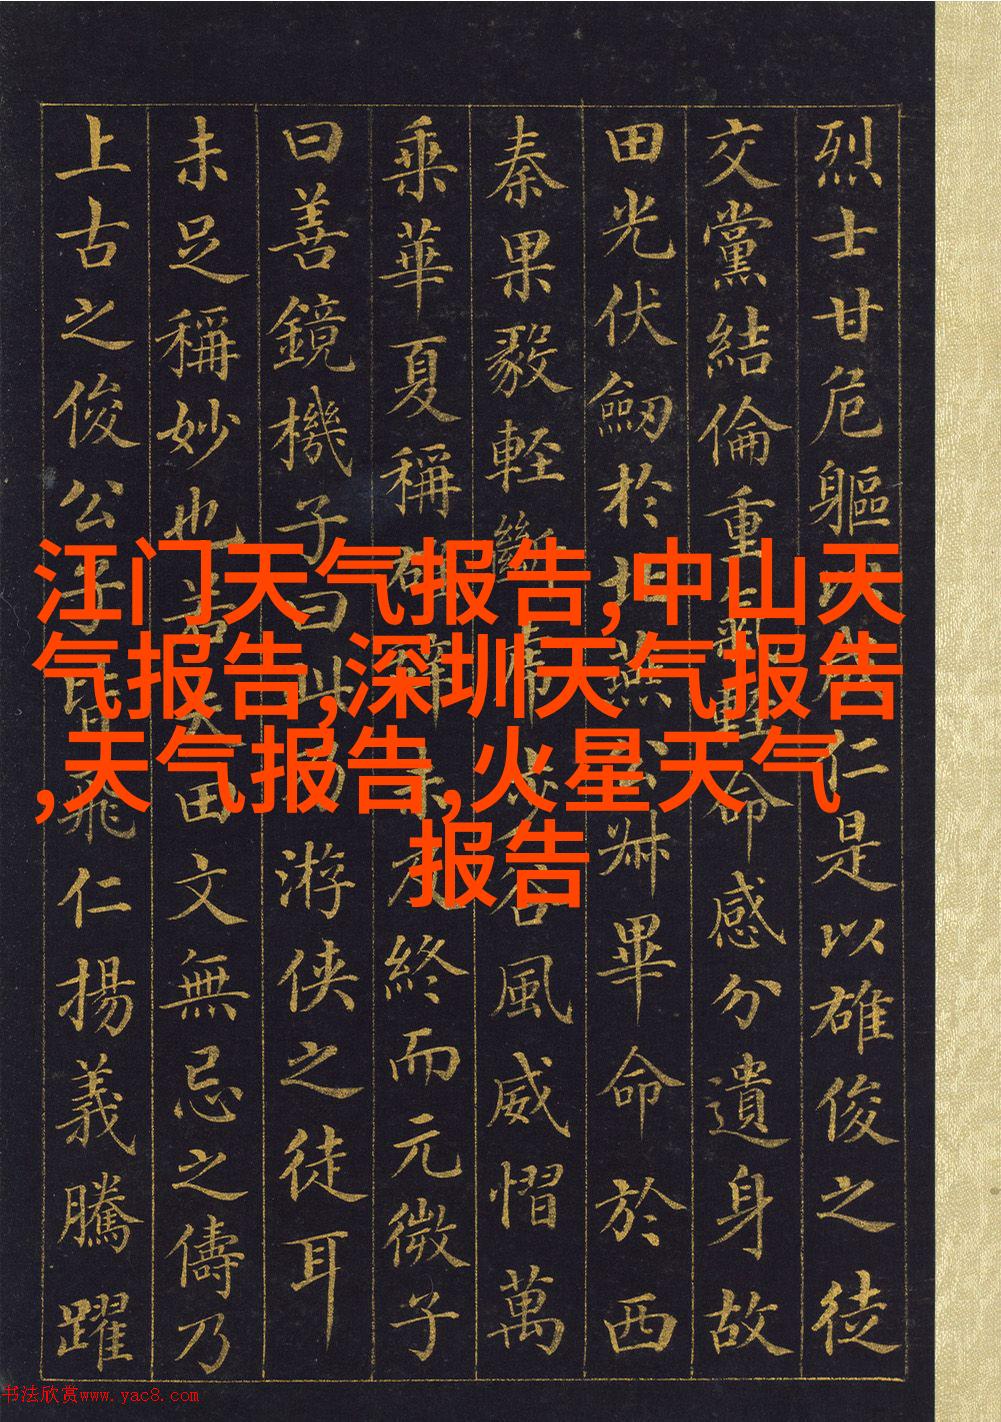 烈士甘危軀仁是以雄俊之徒
交黨結倫重輕命感分遺身故
田光伏劒於北燕公叔畢命於西
秦果毅輕斷虎步谷風威慴萬
乘華夏稱雄辭未及終而元微子
曰善鏡機子曰此乃游俠之徒耳
未足稱妙也若夫田文無忌之儔乃
上古之俊公子皆飛仁揚義騰躍
江门天气报告,中山天
气报告,深圳天气报告
,天气报告,火星天气
报告
书法欣赏www.yac8.com